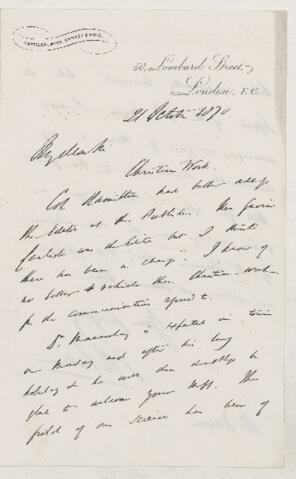 50, Lombard Street,
London, E.C.
21 October 1870
My dear
Christian Work
Col Hamilton had better address
the Editor at the Publisher. Mr
was the Editor but I think
there has been a change. I know of
no better vehicle than Christian Work
for the communication referred to.
Dr Macaulay is expected in town
on Monday next after his long
holiday & he will then doubtless be
glad to welcome your MSS. The
field of our Science has been of